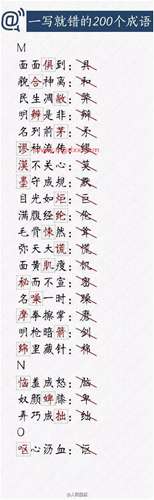 @
一写就错的200个成语
M
面面俱到：具
貌合神离：和
民生凋敝：弊
明辨是非：辩
名列前茅：矛
谬种流传：缪
漠不关心：莫
墨守成规：
目光如炬：巨
满腹经纶：伦
毛骨悚然：耸
弥天大谎：慌
面黄肌瘦：饥
秘而不宣：密
名噪一时：躁
摩拳擦掌：磨
明枪暗箭：剑
绵里藏针：棉
N
恼羞成怒：脑
奴颜婢膝：卑
弄巧成拙：绌
O
呕心沥血：沤
@人民日报